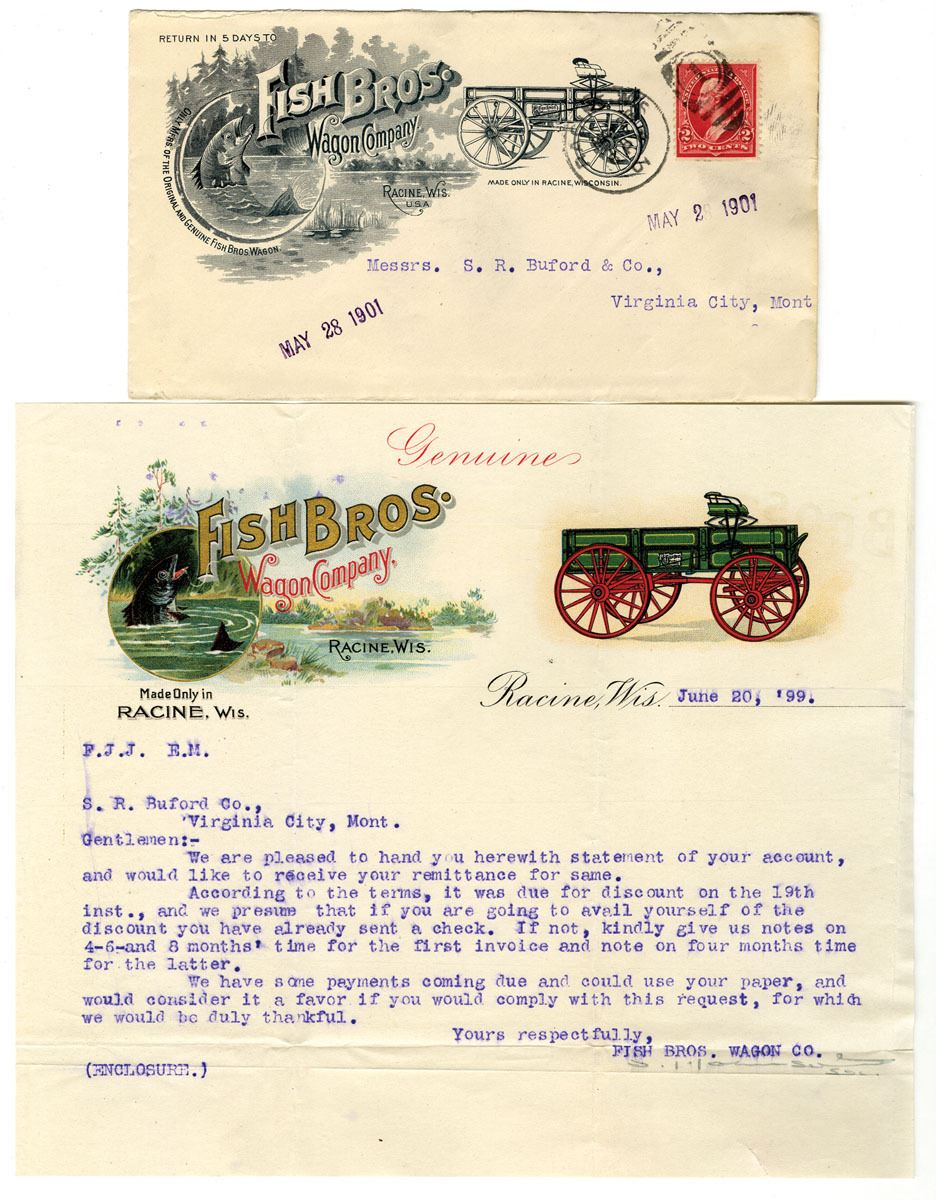 RETURN IN 5 DAYS TO
FISH BROS.
Wagon Company
RACINE, WIS.
U.S.A.
ONLY MFRS. OF THE ORIGINAL AND GENUINE FISH BROS. WAGON.
MADE ONLY IN RACINE, WISCONSIN.
2 2
TWO CENTS
MAY 28 1901
Messrs. S. R. Buford & Co.,
Virginia City, Mont
MAY 28 1901
Genuine
FISH BROS.
Wagon Company,
RACINE, WIS.
Made Only in
RACINE, WIS.
Racine, Wis. June 20, '99.
F.J.J. E.M.
S. R. Buford Co.,
'Virginia City, Mont.
Gentlemen:-
We are pleased to hand you herewith statement of your account,
and would like to receive your remittance for same.
According to the terms, it was due for discount on the 19th
inst., and we presume that if you are going to avail yourself of the
discount you have already sent a check. If not, kindly give us notes on
4-6-and 8 months' time for the first invoice and note on four months time
for the latter.
We have some payments coming due and could use your paper, and
would consider it a favor if you would comply with this request, for which
we would be duly thankful.
Yours respectfully,
FISH BROS. WAGON CO.
(ENCLOSURE.)